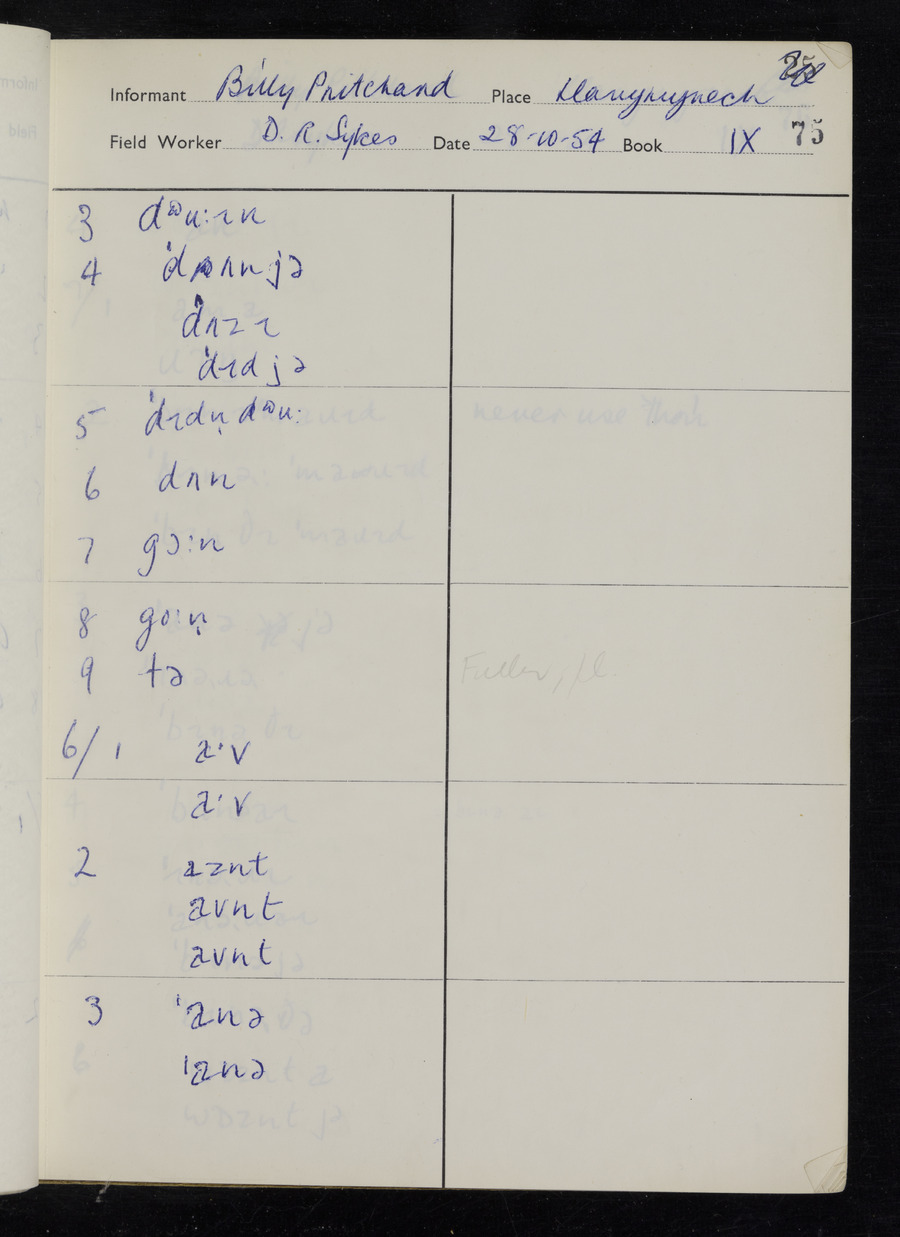 Informant Billy Pritchard Place Llanymynech
Field Worker D. R. Sykes Date 28-10-54 Book IX 75
3 dᵊu:ɪn
4 ˈdʌnjə
ˈdʌzɪ
ˈdɪdjə
5 ˈdɪdn̩ dᵊu:
6 dʌn
7 gɔ:n
8 gɒɪn̩
9 tə
6/1 a·v
a·v
2 aznt
avnt
avnt
3 ˈanə
ˈanə
Fuller, /l.